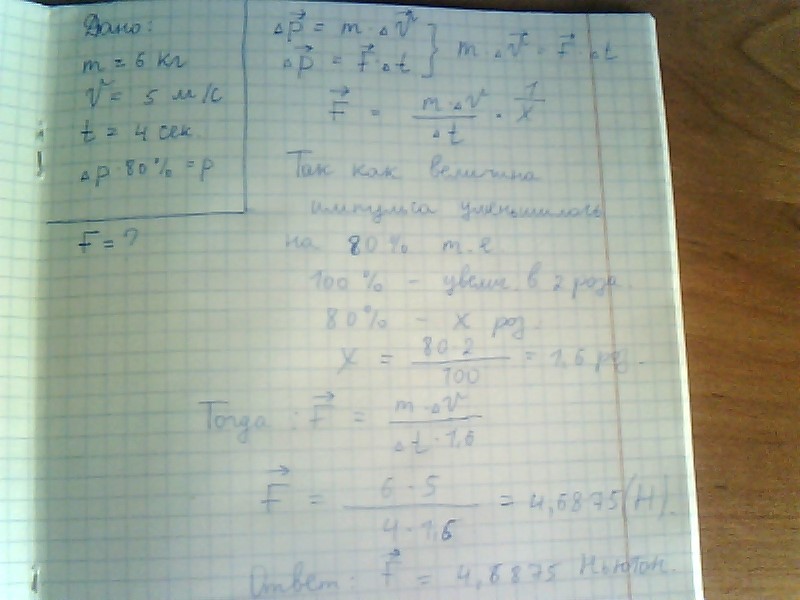 Дано:
m = 6 кг
V = 5 м/с
t = 4 сек
Δp · 80% = p
F = ?
Δp⃗ = m · Δv⃗
Δp⃗ = F⃗ · Δt } m · Δv⃗ = F⃗ · Δt
F⃗ = (m · Δv / Δt) · 1/x
Так как величина
импульса уменьшилась
на 80% т.е
100% - увелич. в 2 роза.
80% - x роз.
X = 80·2 / 100 = 1,6 рз.
Тогда: F⃗ = m · Δv / Δt · 1,6
F⃗ = 6 · 5 / 4 · 1,6 = 4,6875 (Н).
Ответ: F⃗ = 4,6875 Ньютон.